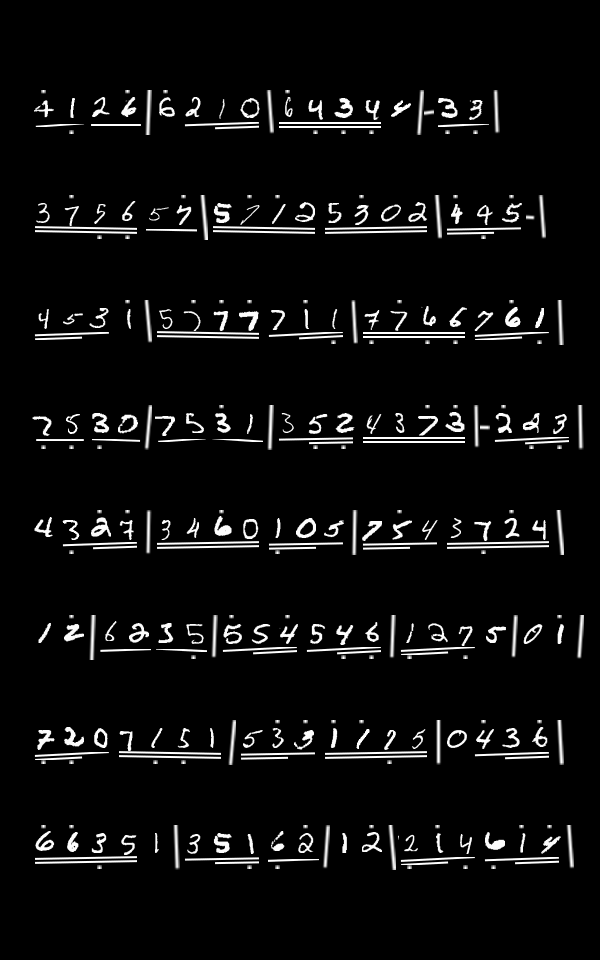 4 1 2 6 | 6 2 1 0 | 6 4 3 4 4 | - 3 3 |
3 7 5 6 5 7 | 5 7 1 2 5 3 0 2 | 4 4 5 - |
4 5 3 1 | 5 7 7 7 7 1 1 | 7 7 6 6 7 6 1 |
7 5 3 0 | 7 5 3 1 | 3 5 2 4 3 7 3 | - 2 2 3 |
4 3 2 7 | 3 4 6 0 1 0 5 | 7 5 4 3 7 2 4 |
1 2 | 6 2 3 5 | 5 5 4 5 4 6 | 1 2 7 5 | 0 1 |
7 2 0 7 1 5 1 | 5 3 3 1 1 7 5 | 0 4 3 6 |
6 6 3 5 1 | 3 5 1 6 2 | 1 2 | 2 1 4 6 1 4 |